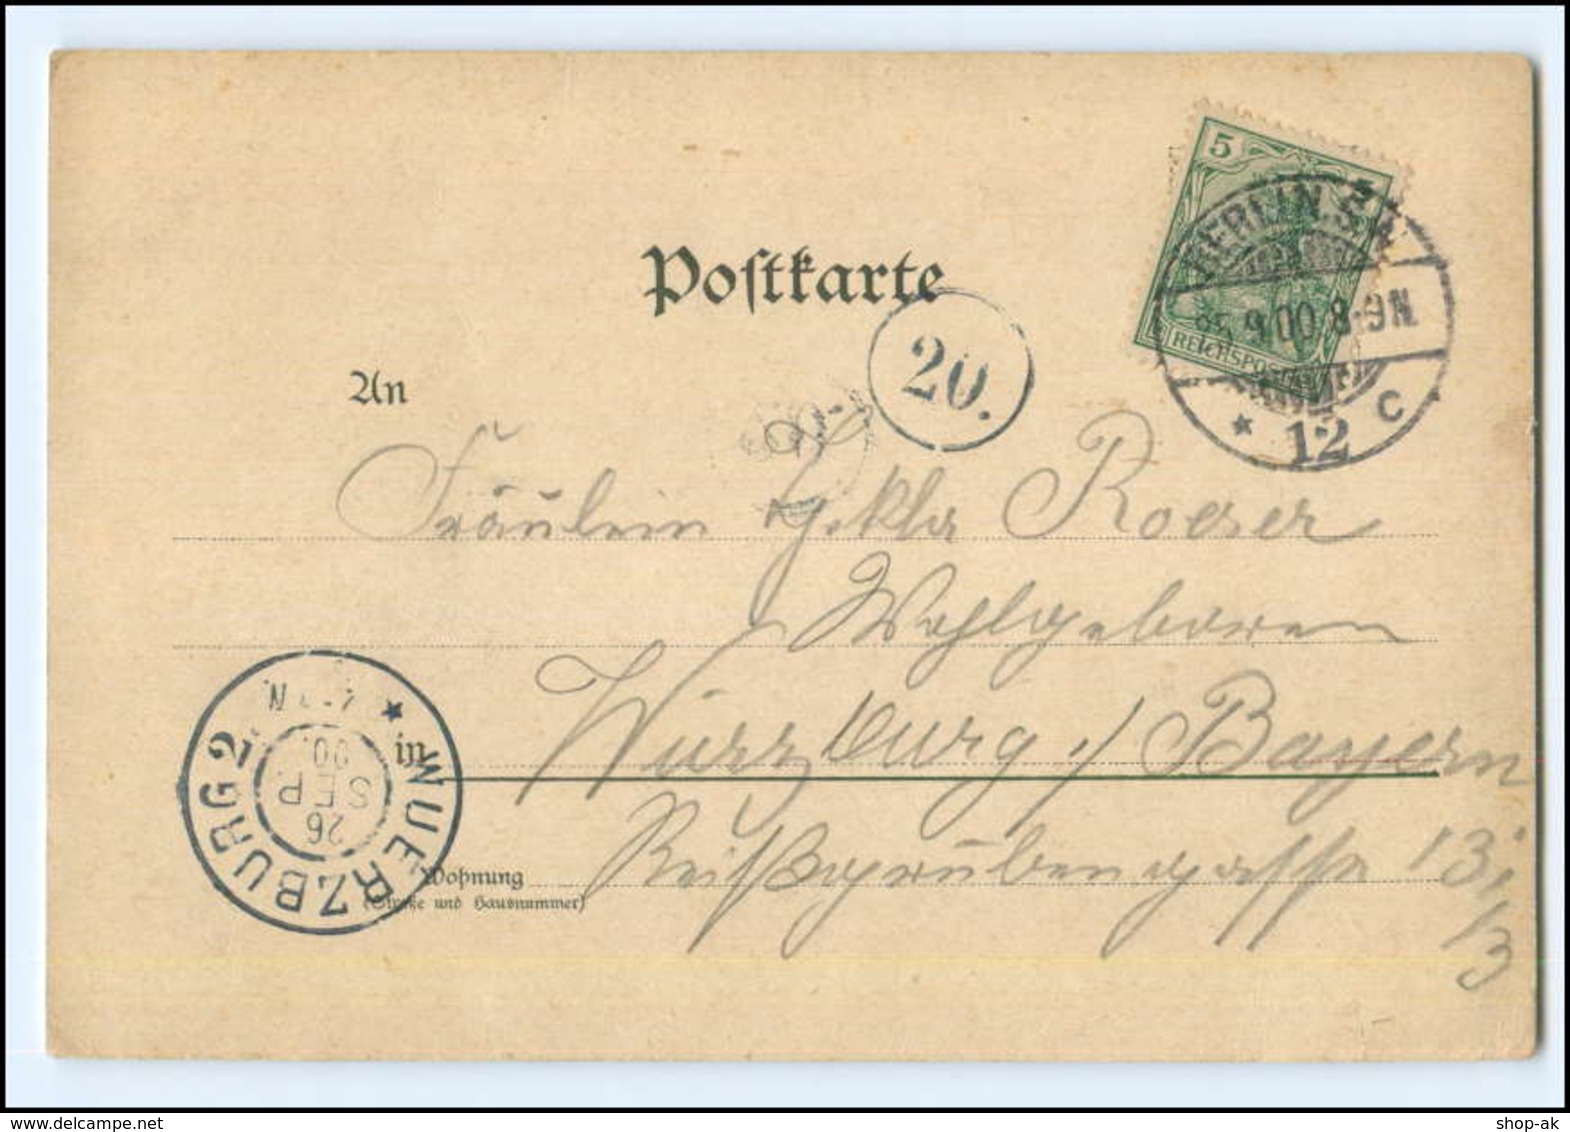 5
5
BERLIN. S.W.
25.9.00.8-9N.
REICHSPOST
* 12 c
Postkarte
20.
An
Fräulein Thekla Roeser
Wohlgeboren
in Würzburg / Bayern
Wohnung Reißgrubengasse 13 I/3
(Straße und Hausnummer)
WUERZBURG 2 *
26
SEP.
00.
shop-ak